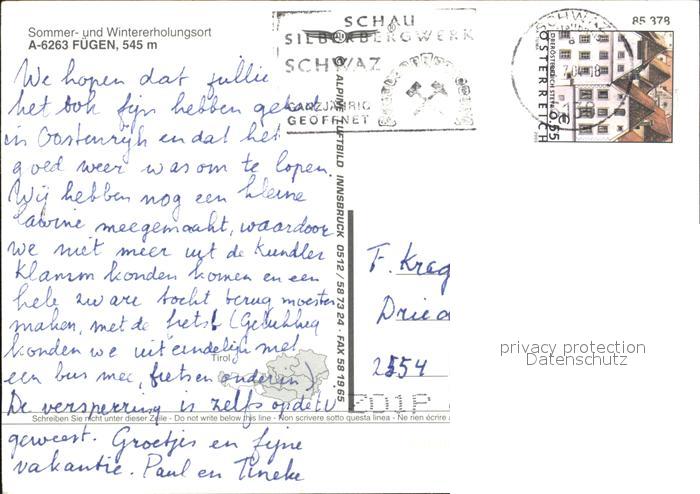 Sommer- und Wintererholungsort
A-6263 FÜGEN, 545 m
We hopen dat jullie
het ook fijn hebben gehad
in Oostenrijk en dat het
goed weer was om te lopen.
Wij hebben nog een kleine
lawine meegemaakt, waardoor
we niet meer uit de Kundler
Klamm konden komen en een
hele zware tocht terug moesten
maken, met de fiets! (Gelukkig
konden we uiteindelijk met
een bus mee, fietsen onderin)
De versperring is zelfs op de tv
geweest. Groetjes en fijne
vakantie. Paul en Tineke
Tirol
Schreiben Sie nicht unter dieser Zeile - Do not write below this line - Non scrivere sotto questa linea - Ne rien écrire
ALPINE LUFTBILD INNSBRUCK 0512/58 73 24 · FAX 58 19 65
SCHAU
SILBERBERGWERK
SCHWAZ
GANZJÄHRIG
GEÖFFNET
SCHWAZ
85 378
ÖSTERREICH
0,55
€
F. Kreg
Drie
2554
privacy protection
Datenschutz